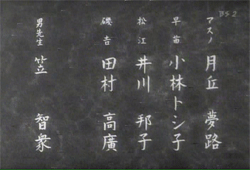 アスノ 月丘 夢路
早苗 小林トシ子
松江 井川 邦子
磯吉 田村 高廣
男先生 笠 智衆